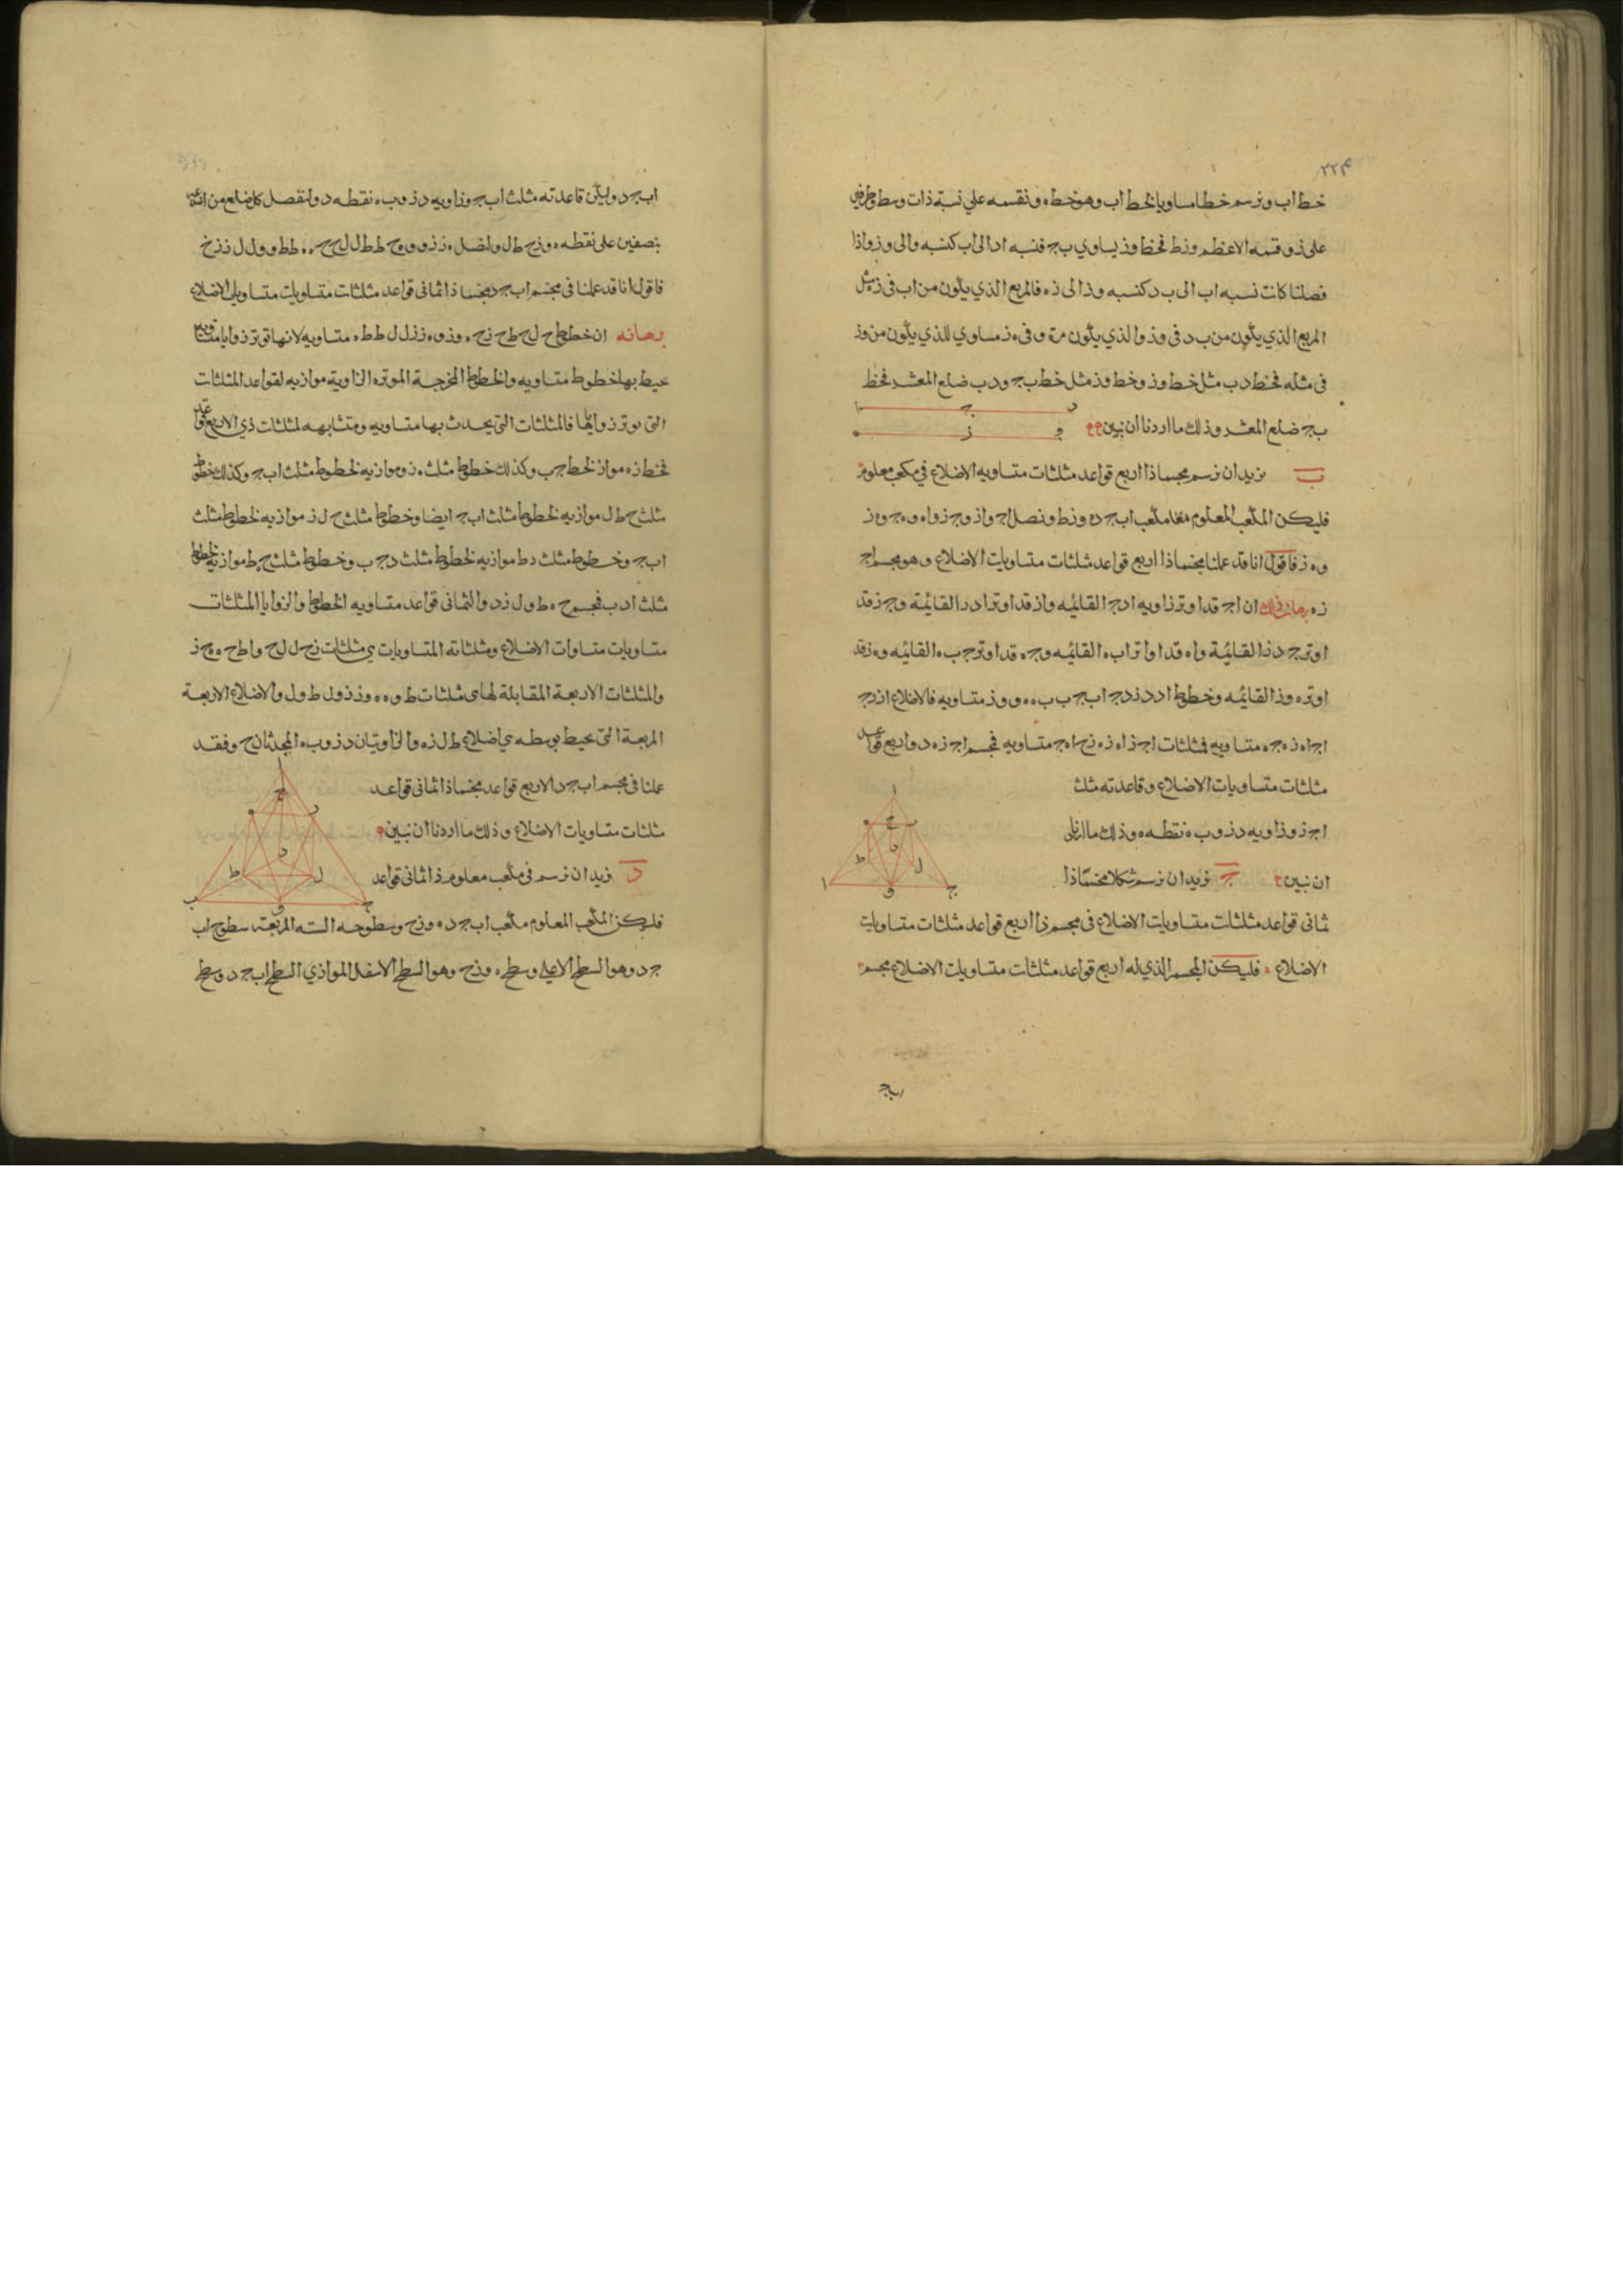 ٢٢٤
خط اب ونرسم خطا مساويا لخط اب وهو خط ه ونقسمه على نسبة ذات وسط وطرفين
على ز وقسمه الاعظم وز فخط وز يساوي ب ج فنسبه اد الى اب كنسبه والى وز واذا
فصلنا كانت نسبه اب الى ب د كنسبه وز الى زه فالمربع الذي يكون من اب فى زه مثل
المربع الذي يكون من ب د فى وز والذي يكون من ه و فى ه ز مساوي للذي يكون من وز
فى مثله فخط دب مثل خط وز وخط وز مثل خط ب ج ودب ضلع المعشر فخط
ب ج ضلع المعشر وذلك ما اردنا ان نبين
ا ج د
ه ز و
ب نريد ان نرسم مجسما ذا اربع قواعد مثلثات متساويه الاضلاع في مكعب معلوم
فليكن المكعب المعلوم مكعب اب ج د ه وزط ونصل اج واز وج ز واه وه ج وه ز
وه ز فاقول انا قد عملنا مجسما ذا اربع قواعد مثلثات متساويات الاضلاع وهو مجسم اج
زه برهان ذلك ان اج قد اوتر زاويه ادج القائمه واز قد اوتر ادر القائمة وج ز قد
اوتر ج د ز القائمة واه قد اوتر اب ه القائمه وج ه قد اوتر ج ب ه القائمه وه ز قد
اوتر ه وز القائمه وخطوط اد دز دج اب ج ب ب ه ه و وز متساويه فالاضلاع از زج
اج اه زه ج ه متساويه فمثلثات اج ز اه ز ه زج اه ج متساويه فمجسم اج زه ذو اربع قواعد
مثلثات متساويات الاضلاع وقاعدته مثلث
اج ز وزاويه د ز و ب ه نقطه ه وذلك ما اردنا
ان نبين ج نريد ان نرسم شكلا مجسما ذا
ثمانى قواعد مثلثات متساويات الاضلاع فى مجسم ذا اربع قواعد مثلثات متساويات
الاضلاع فليكن المجسم الذي له اربع قواعد مثلثات متساويات الاضلاع مجسم
اب ج
اب ج د وليكن قاعدته مثلث اب ج وزاويه د ز و ب ه نقطه د ولنفصل كل ضلع من اضلاعه
بنصفين على نقطه ه وزح ط ل ولنصل ه ز زو وح ط ط ل ل ح ح ه ه ط ط و و ل ل ز زح
فاقول انا قد عملنا فى مجسم اب ج د مجسما ذا ثمانى قواعد مثلثات متساويات متساويات الاضلاع
برهانه ان خطوط ح ل ح ط ح زح ه وز وه زز ل ل ط ط ه متساويه لانها توتر زوايا متساويه
يحيط بها خطوط متساويه والخطوط المخرجة الموتره الزاوية موازيه لقواعد المثلثات
التى توتر زواياها فالمثلثات التى يحدث بها متساويه ومتشابهه لمثلثات ذي الاربع قواعد
فخط زه مواز لخط ج ب وكذلك خطوط مثلث ه ز و موازيه لخطوط مثلث اب ج وكذلك خطوط
مثلث ح ط ل موازيه لخطوط مثلث اب ج ايضا وخطوط مثلث ح ل ز موازيه لخطوط مثلث
اب ج وخطوط مثلث ه ط موازيه لخطوط مثلث دج ب وخطوط مثلث ح ه ط موازيه لخطوط
مثلث اد ب فمجسم ح ه ط و ل ز ذو الثمانى قواعد متساويه الخطوط والزوايا المثلثات
متساويات متساوات الاضلاع ومثلثاته المتساويات هي مثلثات زح ل ل ح واط ح ه ه ح ز
والمثلثات الاربعة المقابلة لها هى مثلثات ط و ه ه وز ز و ل ط و ل والاضلاع الاربعة
المربعة التى يحيط بوسطه هي اضلاع ط ل زه والزاويتان د ز و ب ه المحدثان ح و فقد
عملنا فى مجسم اب ج د الاربع قواعد مجسما ذا ثمانى قواعد
مثلثات متساويات الاضلاع وذلك ما اردنا ان نبين
د نريد ان نرسم فى مكعب معلوم ذا ثمانى قواعد
فليكن المكعب المعلوم مكعب اب ج د ه وزح وسطوحه السته المربعة سطوح اب
ج د وهو السطح الاعلى وسطح ه وزح وهو السطح الاسفل الموازي السطح اب ج د وسطح